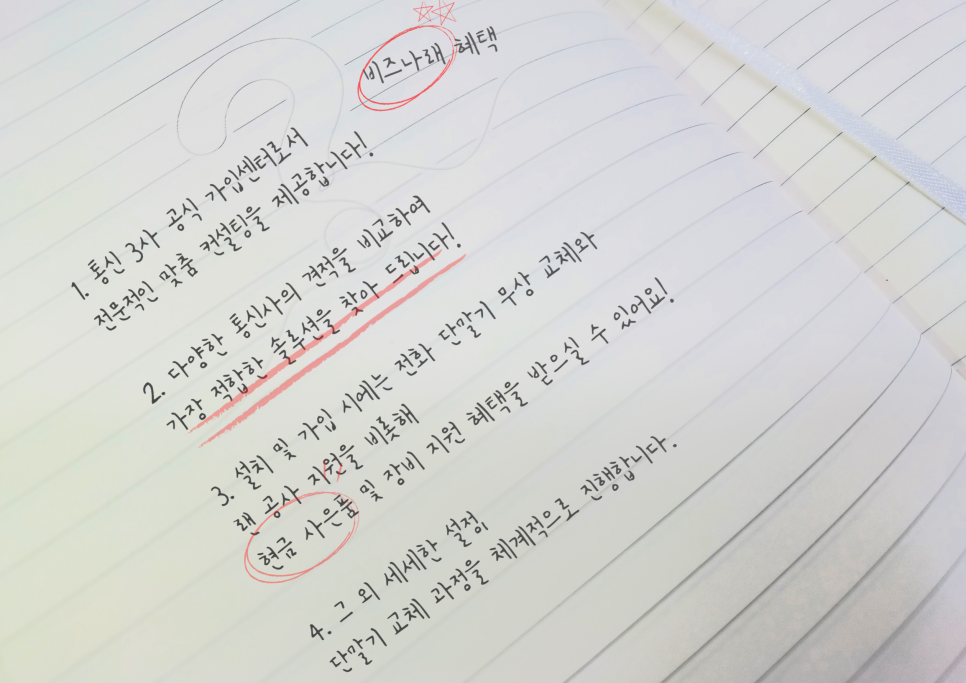 비즈나래 혜택
1. 통신 3사 공식 가입센터로서
전문적인 맞춤 컨설팅을 제공합니다!.
2. 다양한 통신사의 견적을 비교하여
가장 적합한 솔루션을 찾아 드립니다!.
3. 설치 및 가입 시에는 전화 단말기 무상 교체와
랜 공사 지원을 비롯해
현금 사은품 및 장비 지원 혜택을 받으실 수 있어요!.
4. 그 외 세세한 설정,
단말기 교체 과정을 체계적으로 진행합니다.